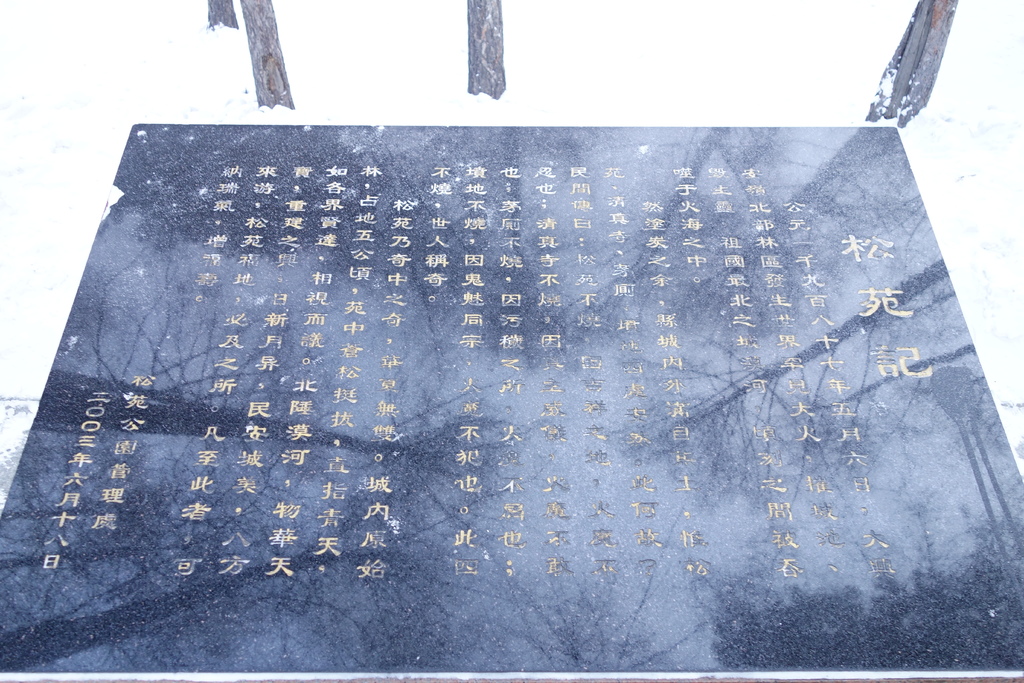 松苑記
公元一千九百八十七年五月六日，大興
安嶺北部林區發生世界罕見大火，摧城池、
毀生靈 祖國最北之城漠河 頃刻之間被吞
噬于火海之中。
然塗炭之余，縣城内外滿目焦土，惟松
苑、清真寺、茅厠 墳地 處 。此何故？
民間傳曰：松苑不燒 吉祥之地，火魔不
忍也；清真寺不燒，因 ，火魔不敢
也；茅厠不燒，因污穢之所，火 不屑也；
墳地不燒，因鬼魅同宗，火魔不犯也。此四
不燒，世人稱奇。
松苑乃奇中之奇，華夏無雙。城内原始
林，占地五公頃，苑中蒼松挺拔，直指青天，
如各界賢達，相視而議。北陲漠河，物華天
寶，重建之興。日新月异，民安城美，八方
來游，松苑福地，必及之所。凡至此者，可
納瑞氣，增福壽。
松苑公園管理處
二〇〇三年六月十八日